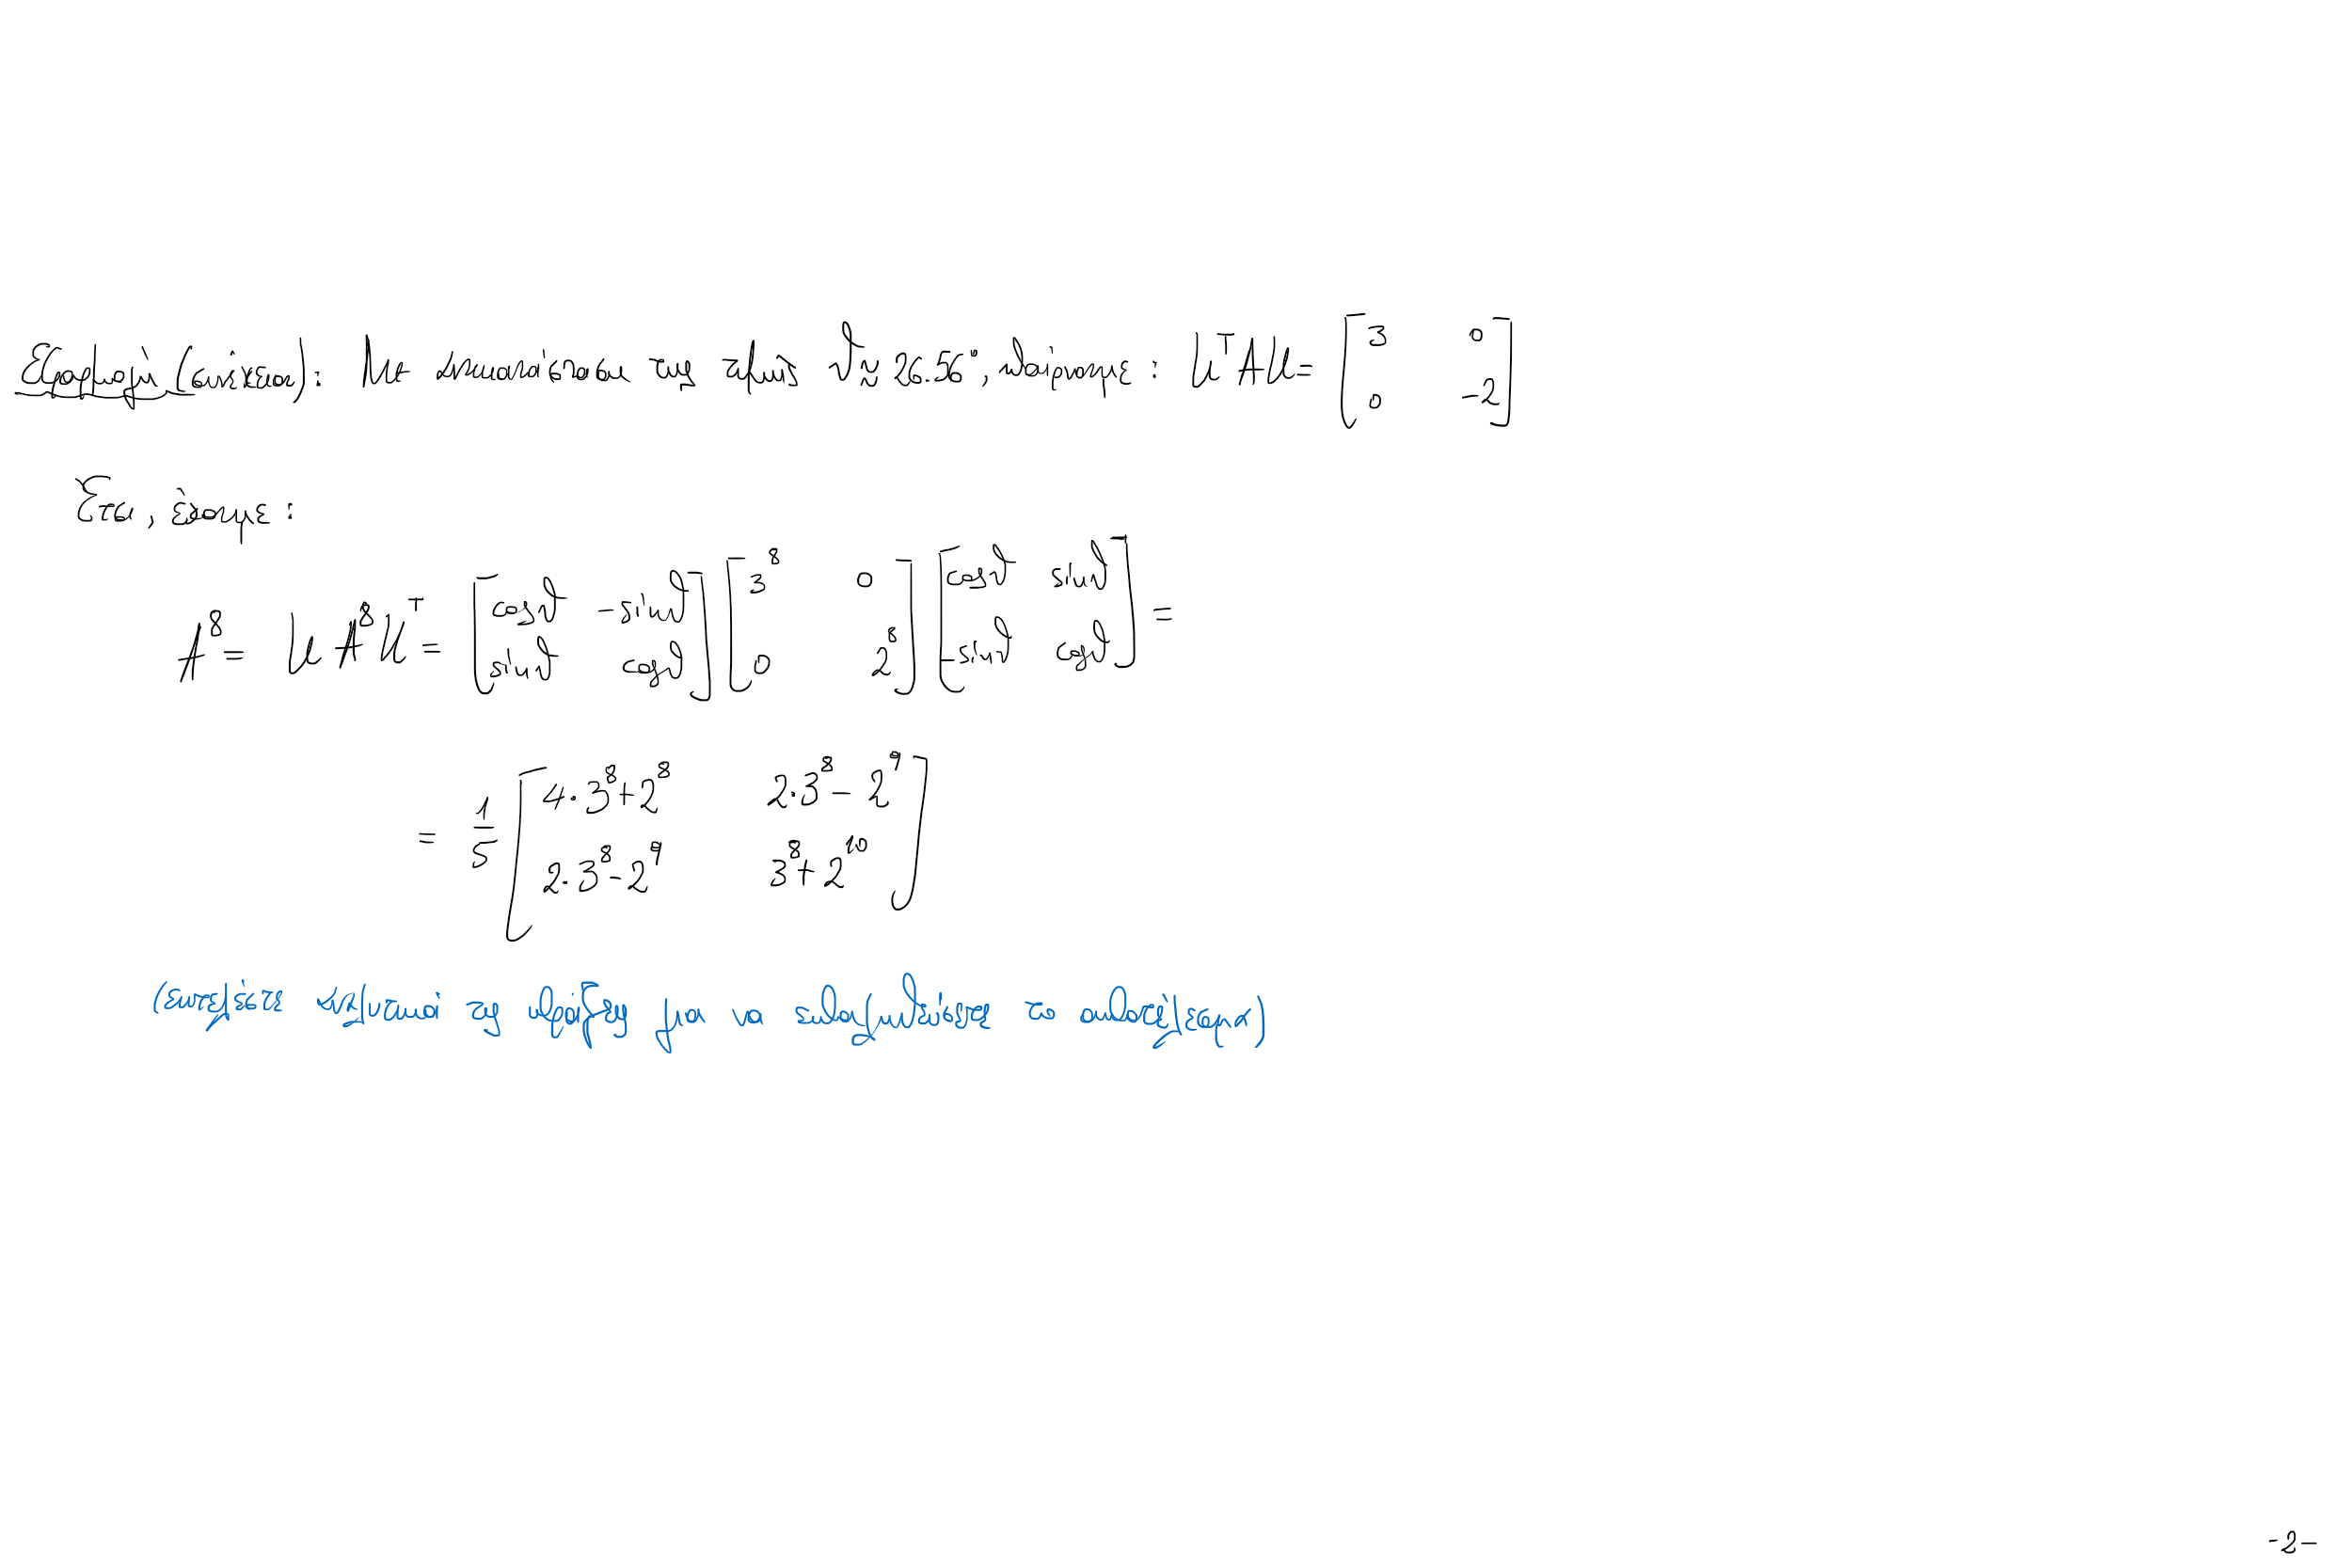 Εφαρμογή (συνέχεια): Με αντικατάσταση της τιμής θ≈26.56°, παίρνουμε: U^T A U = [3 0
0 -2]
Έτσι, έχουμε:
A^8 = U Λ^8 U^T = [cosθ -sinθ] [3^8 0] [cosθ sinθ] =
[sinθ cosθ] [0 2^8] [-sinθ cosθ]
= 1/5 [4·3^8+2^8 2·3^8-2^9]
[2·3^8-2^9 3^8+2^10]
(εκτελέστε αναλυτικά τις πράξεις για να επαληθεύσετε το αποτέλεσμα)
-2-